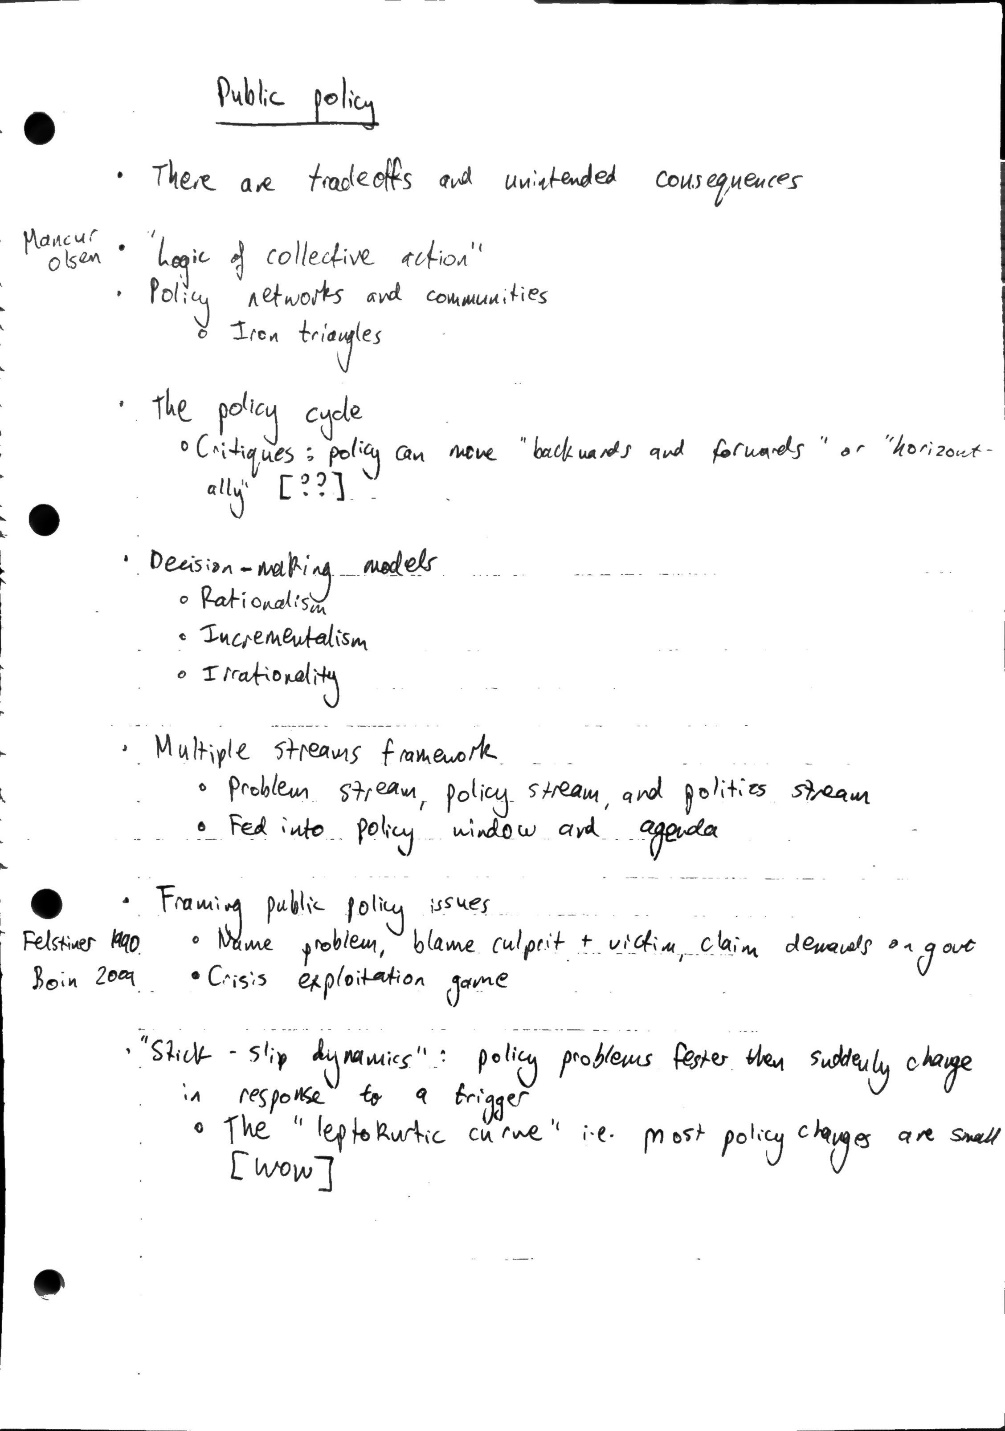 Public policy
• There are tradeoffs and unintended consequences
Mancur
Olsen
• "Logic of collective action"
• Policy networks and communities
o Iron triangles
• The policy cycle
o Critiques: policy can move "backwards and forwards" or "horizont-
ally" [??]
• Decision-making models
o Rationalism
o Incrementalism
o Irrationality
• Multiple streams framework
o Problem stream, policy stream, and politics stream
o Fed into policy window and agenda
• Framing public policy issues
Felstiner 1990
o Name problem, blame culprit + victim, claim demands on govt
Boin 2009
• Crisis exploitation game
• "Stick-slip dynamics": policy problems fester then suddenly change
in response to a trigger
o The "leptokurtic curve" i.e. most policy changes are small
[wow]